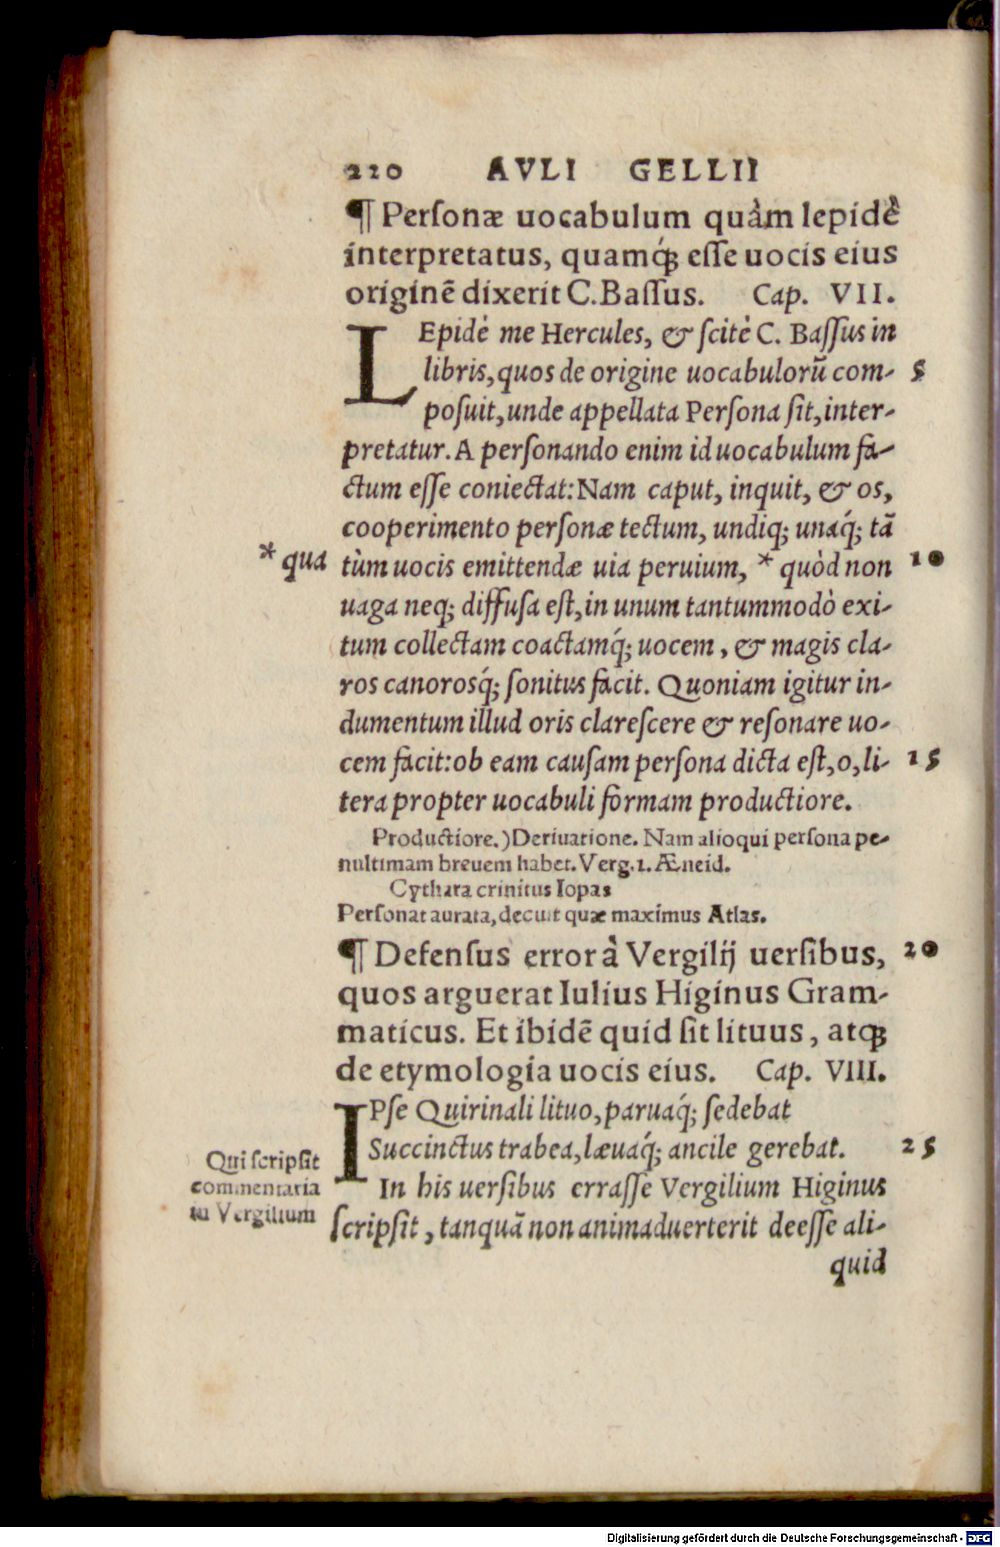 220 AVLI GELLII
¶ Perſonæ uocabulum quàm lepidè
interpretatus, quamq́ꝫ eſſe uocis eius
originē dixerit C.Baſſus. Cap. VII.
LEpidè me Hercules, & ſcitè C. Baſſus in
libris,quos de origine uocabulorū com- 5
poſuit,unde appellata Perſona ſit,inter-
pretatur. A perſonando enim id uocabulum fa-
ctum eſſe coniectat:Nam caput, inquit, & os,
cooperimento perſonæ tectum, undiq; unaq́; tā
* qua tùm uocis emittendæ uia peruium, * quòd non 10
uaga neq; diffuſa eſt,in unum tantummodò exi-
tum collectam coactamq́; uocem, & magis cla-
ros canorosq́; ſonitus facit. Quoniam igitur in-
dumentum illud oris clareſcere & reſonare uo-
cem facit:ob eam cauſam perſona dicta eſt,o,li- 15
tera propter uocabuli formam productiore.
Productiore.)Deriuatione. Nam alioqui perſona pe-
nultimam breuem habet. Verg.1. Æneid.
Cythara crinitus Iopas
Perſonat aurata,decuit quæ maximus Atlas.
¶ Defenſus error à Vergilij uerſibus, 20
quos arguerat Iulius Higinus Gram-
maticus. Et ibidē quid ſit lituus, atqꝫ
de etymologia uocis eius. Cap. VIII.
IPſe Quirinali lituo,paruaq́; ſedebat
Succinctus trabea,læuaq́; ancile gerebat. 25
Qui ſcripſit
commentaria
in Vergilium
In his uerſibus erraſſe Vergilium Higinus
ſcripſit, tanquā non animaduerterit deeſſe ali-
quid
Digitalisierung gefördert durch die Deutsche Forschungsgemeinschaft - DFG